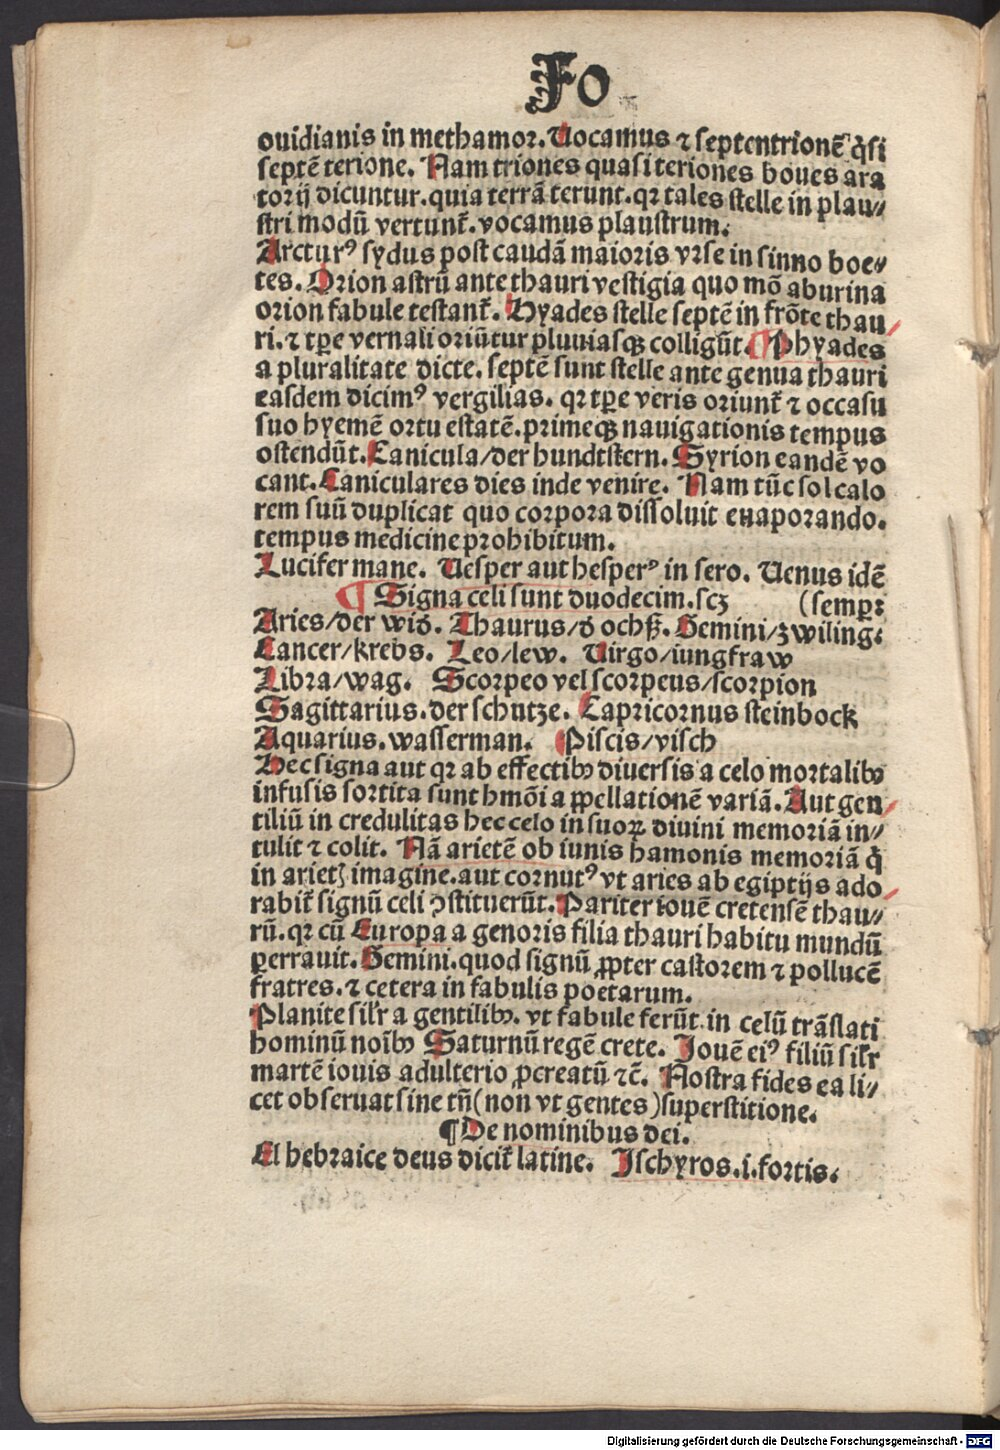 Fo
ouidianis in methamoꝛ. Uocamus ⁊ septentrionē q̄si
septē terione. Nam triones quasi teriones boues ara
toꝛij dicuntur. quia terrā terunt. qꝛ tales stelle in plau⸗
stri modū vertunt᷑. vocamus plaustrum.
Arcturꝰ sydus post caudā maioꝛis vꝛse in sinno boe⸗
tes. Oꝛion astrū ante thauri vestigia quo mō ab urina
oꝛion fabule testant᷑. Hyades stelle septē in frōte thau
ri. ⁊ tꝑe vernali oꝛiūtur pluuiasqꝫ colligūt. ¶ Phyades
a pluralitate dicte. septē sunt stelle ante genua thauri
easdem dicimꝰ vergilias. qꝛ tꝑe veris oꝛiunt᷑ ⁊ occasu
suo hyemē oꝛtu estatē. pꝛimeqꝫ nauigationis tempus
ostendūt. Canicula/der hundtstern. Syrion eandē vo
cant. Caniculares dies inde venire. Nam tūc sol calo
rem suū duplicat quo coꝛpoꝛa dissoluit euapoꝛando.
tempus medicine pꝛohibitum.
Lucifer mane. Uesper aut hesperꝰ in sero. Uenus idē
¶ Signa celi sunt duodecim. scꝫ (semper:
Aries/der wid̕. Thaurus/d̕ ochß. Gemini/zwiling:
Cancer/krebs. Leo/lew. Uirgo/iungfraw
Libra/wag. Scoꝛpeo vel scoꝛpeus/scoꝛpion
Sagittarius. der schutze. Capꝛicoꝛnus steinbock
Aquarius. wasserman. Piscis/visch
Hec signa aut qꝛ ab effectibꝫ diuersis a celo moꝛtalibꝫ
infusis soꝛtita sunt hmōi appellationē variā. Aut gen
tiliū in credulitas hec celo in suoꝝ diuini memoꝛiā in⸗
tulit ⁊ colit. Nā arietē ob iunis hamonis memoꝛiā q̄
in arietꝭ imagine. aut coꝛnutꝰ vt aries ab egiptijs ado
rabit᷑ signū celi ꝯstituerūt. Pariter iouē cretensē thau⸗
rū. qꝛ cū Europa a genoꝛis filia thauri habitu mundū
ꝑerrauit. Gemini. quod signū ꝓpter castoꝛem ⁊ pollucē
fratres. ⁊ cetera in fabulis poetarum.
Planite sil̕r a gentilibꝫ. vt fabule ferūt in celū trāslati
hominū noībꝫ Saturnū regē crete. Jouē eiꝰ filiū sil̕r
martē iouis adulterio ꝓcreatū ⁊c̄. Nostra fides ea li⸗
cet obseruat sine tn̄ (non vt gentes) superstitione.
¶ De nominibus dei.
El hebꝛaice deus dicit᷑ latine. Jschyros. i. foꝛtis.
Digitalisierung gefördert durch die Deutsche Forschungsgemeinschaft - DFG